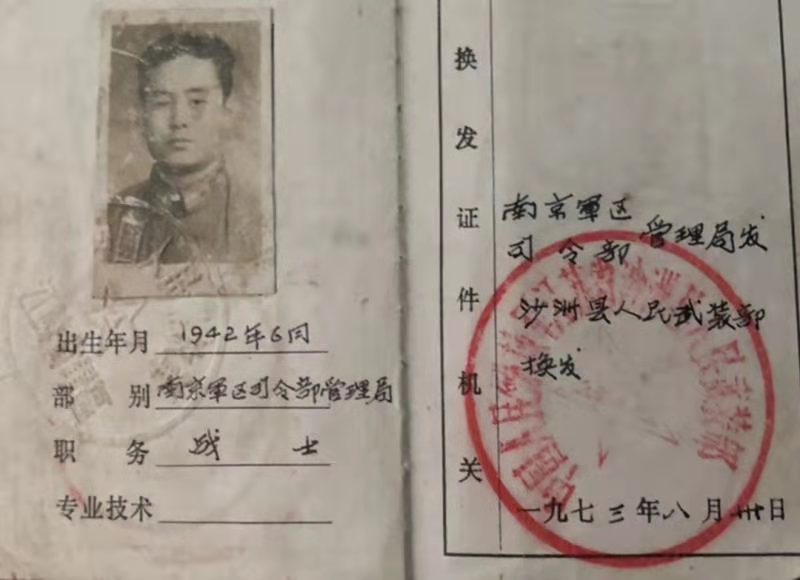 出生年月 1942年6月
部别 南京軍区司令部管理局
职务 战士
专业技术
换发证件机关
南京軍区
司令部 管理局发
沙洲县人民武装部
换发
一九七三年八月卅日